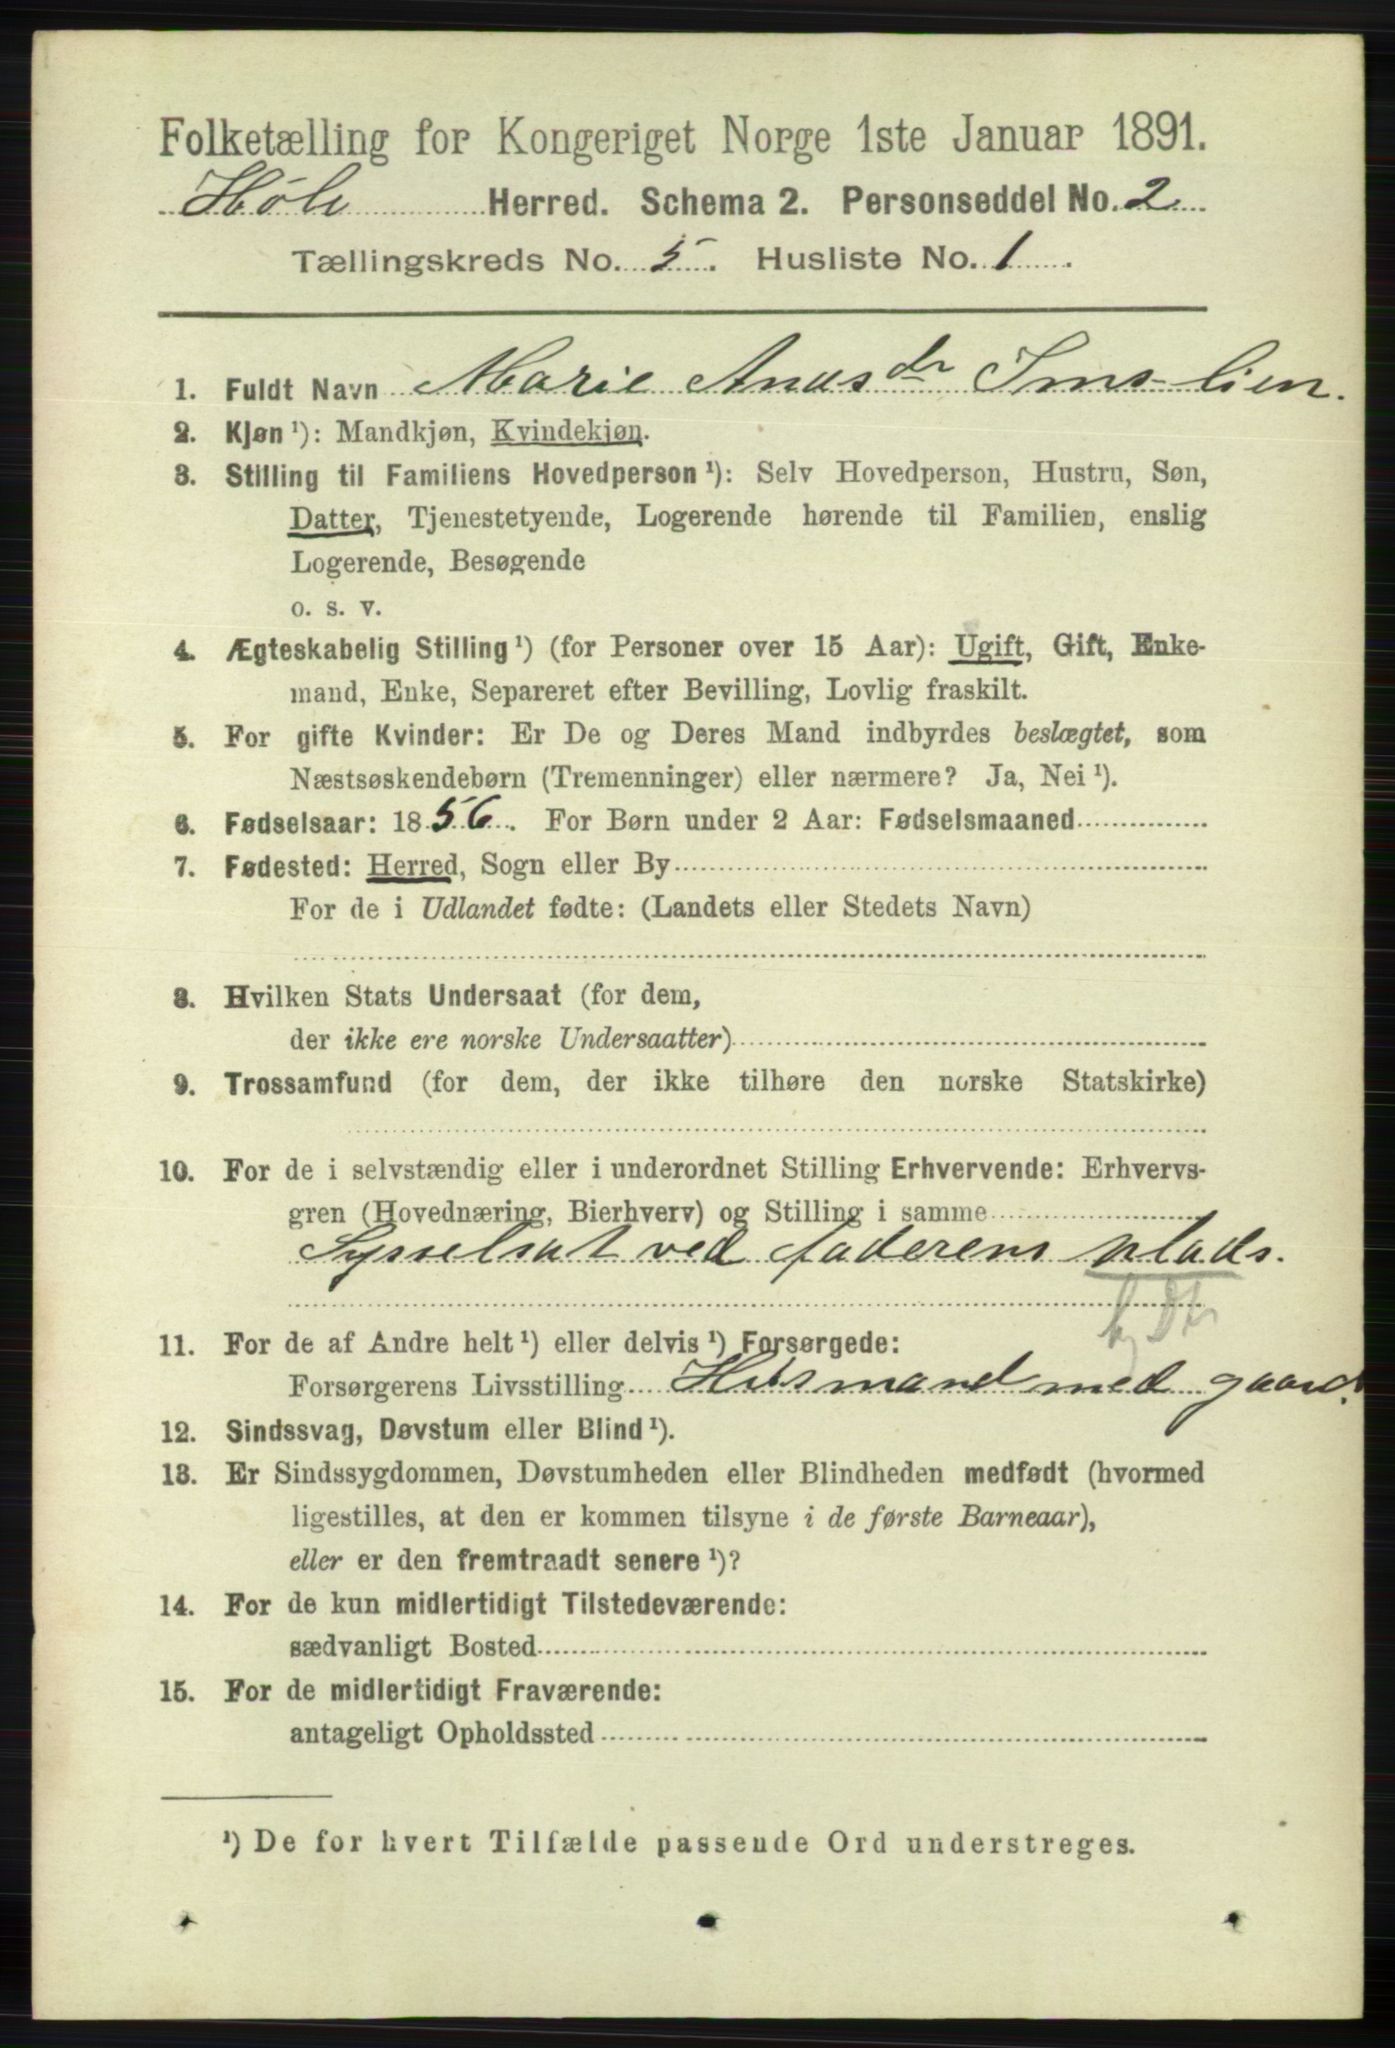 Folketælling for Kongeriget Norge 1ste Januar 1891.
Høle Herred. Schema 2. Personseddel No. 2
Tællingskreds No. 5. Husliste No. 1.
1. Fuldt Navn Marie Anasdr Imslien.
2. Kjøn ¹): Mandkjøn, Kvindekjøn.
3. Stilling til Familiens Hovedperson ¹): Selv Hovedperson, Hustru, Søn,
Datter, Tjenestetyende, Logerende hørende til Familien, enslig
Logerende, Besøgende
o. s. v.
4. Ægteskabelig Stilling ¹) (for Personer over 15 Aar): Ugift, Gift, Enke-
mand, Enke, Separeret efter Bevilling, Lovlig fraskilt.
5. For gifte Kvinder: Er De og Deres Mand indbyrdes beslægtet, som
Næstsøskendebørn (Tremenninger) eller nærmere? Ja, Nei ¹).
6. Fødselsaar: 1856. For Børn under 2 Aar: Fødselsmaaned
7. Fødested: Herred, Sogn eller By
For de i Udlandet fødte: (Landets eller Stedets Navn)
8. Hvilken Stats Undersaat (for dem,
der ikke ere norske Undersaatter)
9. Trossamfund (for dem, der ikke tilhøre den norske Statskirke)
10. For de i selvstændig eller i underordnet Stilling Erhvervende: Erhvervs-
gren (Hovednæring, Bierhverv) og Stilling i samme
Sysselsat ved faderens plads.
11. For de af Andre helt ¹) eller delvis ¹) Forsørgede:
Forsørgerens Livsstilling Husmand med gaard.
12. Sindssvag, Døvstum eller Blind ¹).
13. Er Sindssygdommen, Døvstumheden eller Blindheden medfødt (hvormed
ligestilles, at den er kommen tilsyne i de første Barneaar),
eller er den fremtraadt senere ¹)?
14. For de kun midlertidigt Tilstedeværende:
sædvanligt Bosted
15. For de midlertidigt Fraværende:
antageligt Opholdssted
¹) De for hvert Tilfælde passende Ord understreges.